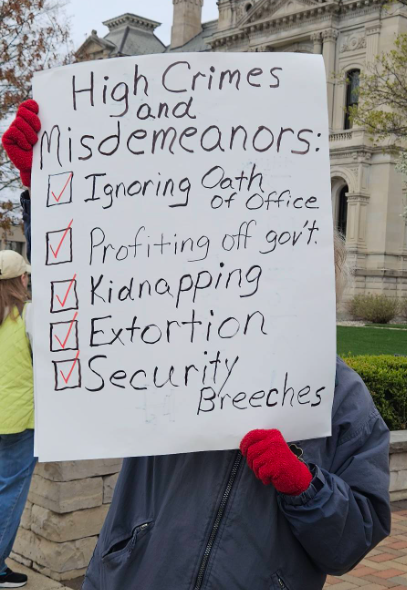 High Crimes
and
Misdemeanors:
Ignoring Oath
of Office
Profiting off gov't.
Kidnapping
Extortion
Security
Breeches